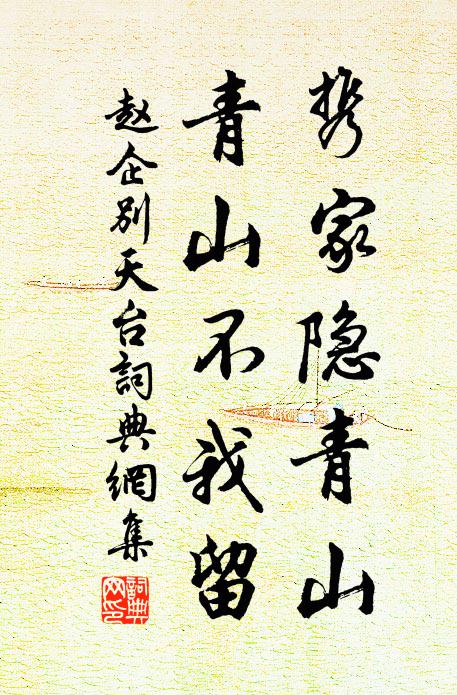 携家隐青山
青山不我留
赵企别天台詞典網集
詞典
网印